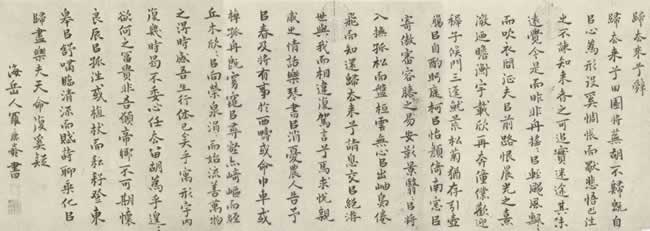 歸去來兮辭
歸去來兮田園將蕪胡不歸既自
以心為形役奚惆悵而獨悲悟已往
之不諫知來者之可追實迷途其未
遠覺今是而昨非舟搖搖以輕颺風飄飄
而吹衣問征夫以前路恨晨光之熹
微迺瞻衡宇載欣載奔僮僕歡迎
稚子候門三逕就荒松菊猶存引壺
觴以自酌眄庭柯以怡顏倚南窗以
寄傲審容膝之易安影翳翳以將
入撫孤松而盤桓雲無心以出岫鳥倦
飛而知還歸去來兮請息交以絕游
世與我而相違復駕言兮焉求悅親
戚之情話樂琴書以消憂農人告予
以春及將有事於西疇或命巾車或
棹孤舟既窈窕以尋壑亦崎嶇而經
丘木欣欣以向榮泉涓涓而始流善萬物
之得時感吾生行休已矣乎寓形宇內
復幾時曷不委心任去留胡為乎遑遑
欲何之富貴非吾願帝鄉不可期懷
良辰以孤往或植杖而耘耔登東
皋以舒嘯臨清流而賦詩聊乘化以
歸盡樂夫天命復奚疑
海岳人羅書